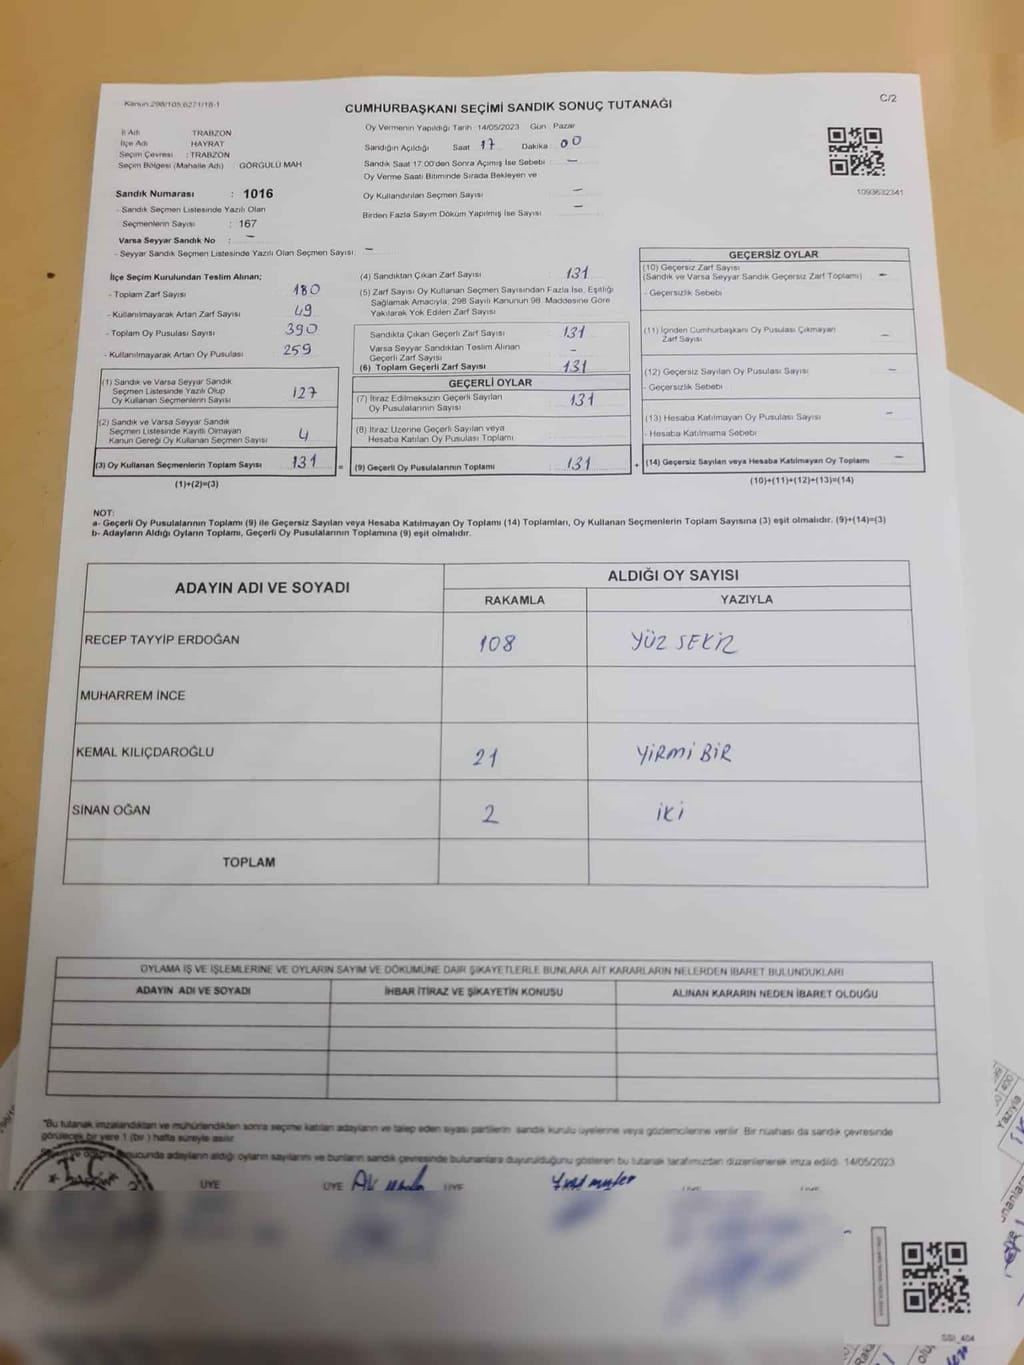 Kanun:298/105,6271/18-1
C/2
CUMHURBAŞKANI SEÇİMİ SANDIK SONUÇ TUTANAĞI
İl Adı TRABZON
İlçe Adı HAYRAT
Seçim Çevresi : TRABZON
Seçim Bölgesi (Mahalle Adı) : GÖRGÜLÜ MAH
Sandık Numarası : 1016
- Sandık Seçmen Listesinde Yazılı Olan
Seçmenlerin Sayısı : 167
Varsa Seyyar Sandık No : -
- Seyyar Sandık Seçmen Listesinde Yazılı Olan Seçmen Sayısı: -
Oy Vermenin Yapıldığı Tarih 14/05/2023 Gün : Pazar
Sandığın Açıldığı Saat 17 Dakika 00
Sandık Saat 17:00'den Sonra Açımış İse Sebebi : -
Oy Verme Saati Bitiminde Sırada Bekleyen ve
Oy Kullandırılan Seçmen Sayısı -
Birden Fazla Sayım Döküm Yapılmış İse Sayısı -
1093632341
İlçe Seçim Kurulundan Teslim Alınan;
- Toplam Zarf Sayısı 180
- Kullanılmayarak Artan Zarf Sayısı 49
- Toplam Oy Pusulası Sayısı 390
- Kullanılmayarak Artan Oy Pusulası 259
(1) Sandık ve Varsa Seyyar Sandık
Seçmen Listesinde Yazılı Olup
Oy Kullanan Seçmenlerin Sayısı 127
(2) Sandık ve Varsa Seyyar Sandık
Seçmen Listesinde Kayıtlı Olmayan
Kanun Gereği Oy Kullanan Seçmen Sayısı 4
(3) Oy Kullanan Seçmenlerin Toplam Sayısı 131 =
(1)+(2)=(3)
(4) Sandıktan Çıkan Zarf Sayısı 131
(5) Zarf Sayısı Oy Kullanan Seçmen Sayısından Fazla İse, Eşitliği
Sağlamak Amacıyla; 298 Sayılı Kanunun 98. Maddesine Göre
Yakılarak Yok Edilen Zarf Sayısı
Sandıkta Çıkan Geçerli Zarf Sayısı 131
Varsa Seyyar Sandıktan Teslim Alınan
Geçerli Zarf Sayısı -
(6) Toplam Geçerli Zarf Sayısı 131
GEÇERLİ OYLAR
(7) İtiraz Edilmeksizin Geçerli Sayılan
Oy Pusulalarının Sayısı 131
(8) İtiraz Üzerine Geçerli Sayılan veya
Hesaba Katılan Oy Pusulası Toplamı
(9) Geçerli Oy Pusulalarının Toplamı 131 +
GEÇERSİZ OYLAR
(10) Geçersiz Zarf Sayısı
(Sandık ve Varsa Seyyar Sandık Geçersiz Zarf Toplamı) -
- Geçersizlik Sebebi
(11) İçinden Cumhurbaşkanı Oy Pusulası Çıkmayan
Zarf Sayısı -
(12) Geçersiz Sayılan Oy Pusulası Sayısı -
- Geçersizlik Sebebi
(13) Hesaba Katılmayan Oy Pusulası Sayısı -
- Hesaba Katılmama Sebebi
(14) Geçersiz Sayılan veya Hesaba Katılmayan Oy Toplamı -
(10)+(11)+(12)+(13)=(14)
NOT:
a- Geçerli Oy Pusulalarının Toplamı (9) ile Geçersiz Sayılan veya Hesaba Katılmayan Oy Toplamı (14) Toplamları, Oy Kullanan Seçmenlerin Toplam Sayısına (3) eşit olmalıdır. (9)+(14)=(3)
b- Adayların Aldığı Oyların Toplamı, Geçerli Oy Pusulalarının Toplamına (9) eşit olmalıdır.
ADAYIN ADI VE SOYADI
ALDIĞI OY SAYISI
RAKAMLA YAZIYLA
RECEP TAYYİP ERDOĞAN 108 YÜZ SEKİZ
MUHARREM İNCE
KEMAL KILIÇDAROĞLU 21 YİRMİ BİR
SİNAN OĞAN 2 İKİ
TOPLAM
OYLAMA İŞ VE İŞLEMLERİNE VE OYLARIN SAYIM VE DÖKÜMÜNE DAİR ŞİKAYETLERLE BUNLARA AİT KARARLARIN NELERDEN İBARET BULUNDUKLARI
ADAYIN ADI VE SOYADI İHBAR İTİRAZ VE ŞİKAYETİN KONUSU ALINAN KARARIN NEDEN İBARET OLDUĞU
"Bu tutanak imzalandıktan ve mühürlendikten sonra seçime katılan adayların ve talep eden siyasi partilerin sandık kurulu üyelerine veya gözlemcilerine verilir. Bir nüshası da sandık çevresinde
görülecek bir yere 1 (bir ) hafta süreyle asılır
sonucunda adayların aldığı oyların sayılarını ve bunların sandık çevresinde bulunanlara duyurulduğunu gösteren bu tutanak tarafımızdan düzenlenerek imza edildi. 14/05/2023
T.C.
ÜYE ÜYE ÜYE
SSI_404
Yazıyla
400